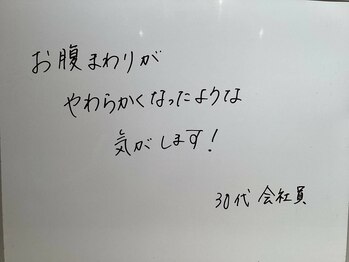 お腹まわりが
やわらかくなったような
気がします!
30代 会社員